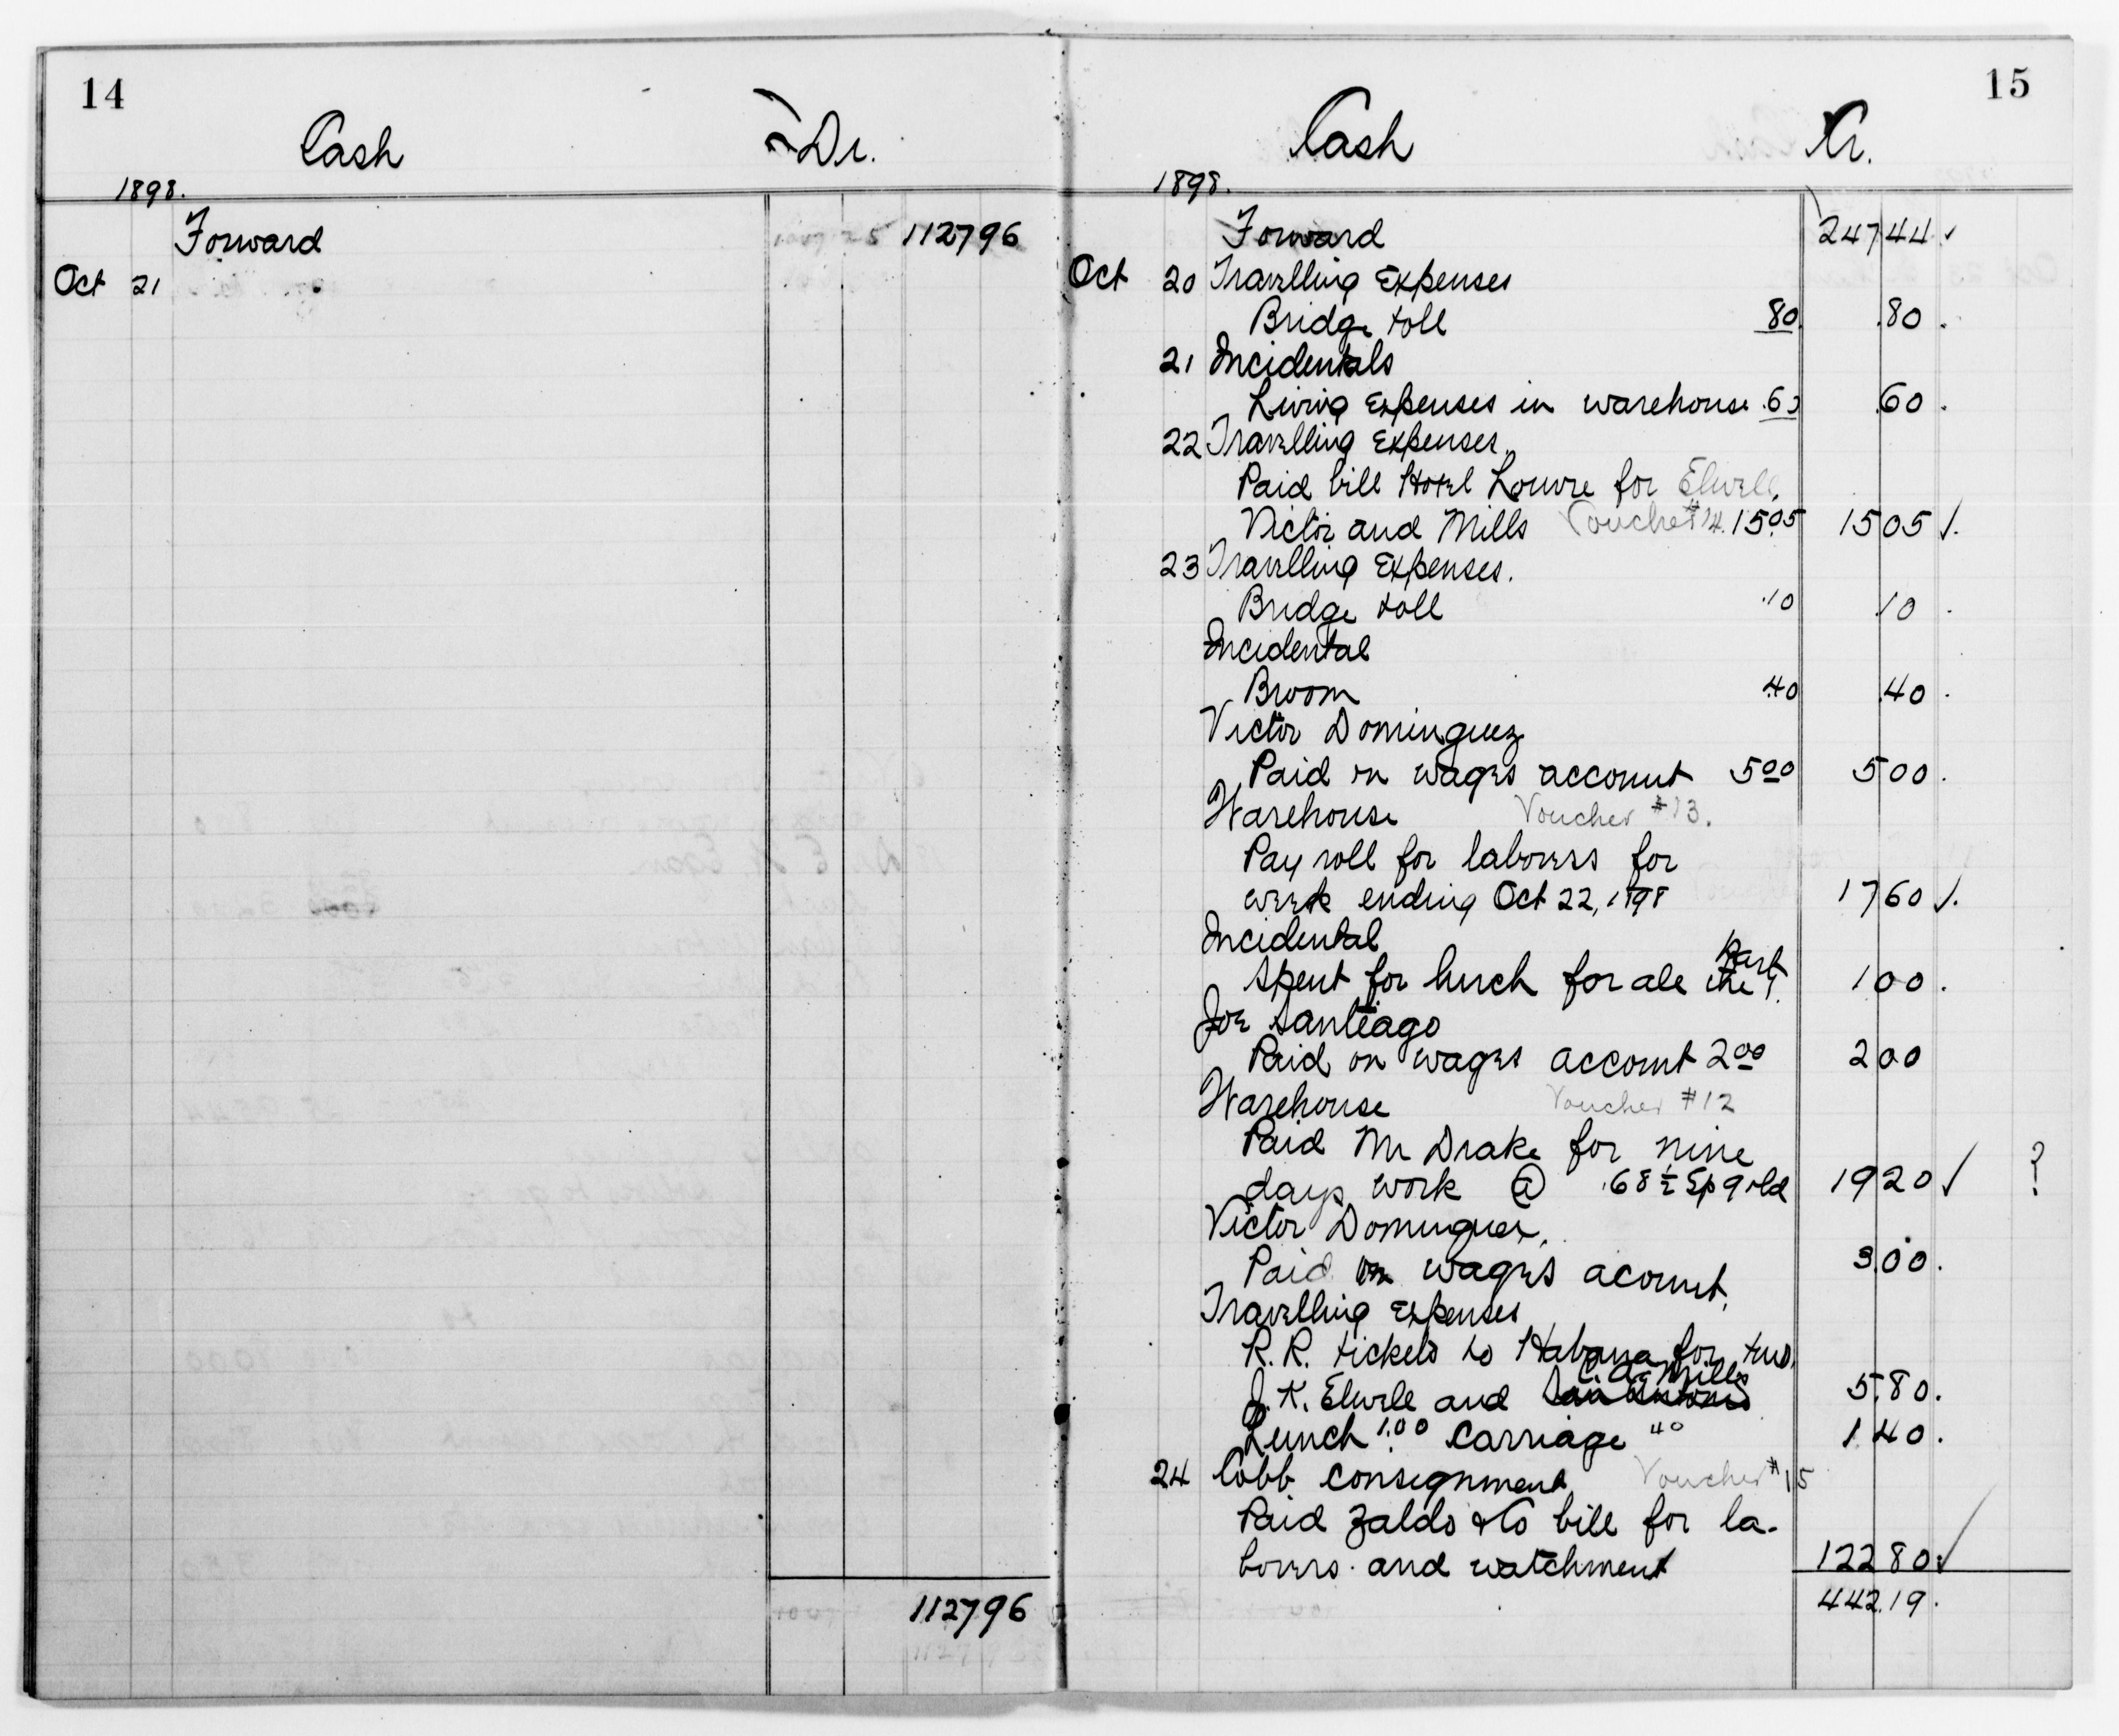 14
Cash Dr.
1898.
Forward 1127 96
Oct 21
1127 96
15
Cash Cr.
1898.
Forward 247 44 ✓
Oct 20 Travelling Expenses
Bridge toll 80 .80 .
21 Incidentals
Living Expenses in warehouse .60 .60 .
22 Travelling Expenses.
Paid bill Hotel Louvre for Elwell,
Victor and Mills Voucher #14. 15.05 15 05 ✓.
23 Travelling Expenses.
Bridge toll .10 .10 .
Incidental
Broom .40 .40 .
Victor Dominguez
Paid on wages account 5 00 5 00 .
Warehouse Voucher #13.
Pay roll for laborers for
week ending Oct 22, 1898 17 60 ✓.
Incidental
Spent for lunch for all the Party. 1 00 .
Joe Santiago
Paid on wages account 2 00 2 00
Warehouse Voucher #12
Paid Mr Drake for nine
days work @ .68 ½ Sp gold 19 20 ✓ ?
Victor Dominguez,
Paid on wages acount, 3.00 .
Travelling Expenses
R.R. tickets to Habana for two,
J. K. Elwell and C. A. Mills 5.80 .
Lunch 1.00 Carriage 40 1 40 .
24 Cobb consignment Voucher #15
Paid Zaldo & Co bill for la-
borers and watchment 122 80 ✓
442.19 .